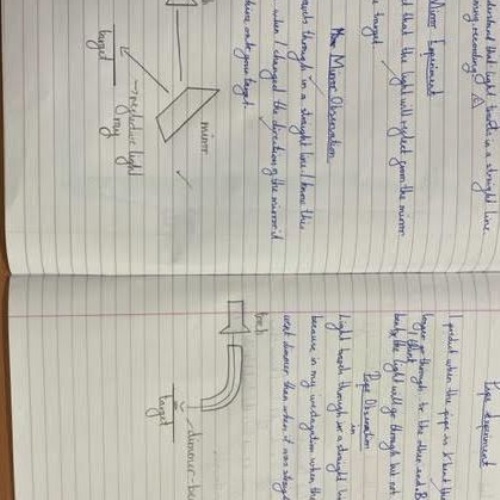 derstand that light travels in a straight line
ning recording
Mirror Experiment
ct that the light will reflect from the mirror
e target
Mirror Observation
avels through in a straight line. I know this
when I changed the direction of the mirror it
make your target
mirror
→ reflective light
ray
target
Pipe Experiment
I predict when the pipe is bent the
go through to the other end. B
I think
bent, the light will go through but not
Pipe Observation
in
Light travels through in a straight li
because in my investigation when the
went dimmer than when it was straig
torch
dimmer
target